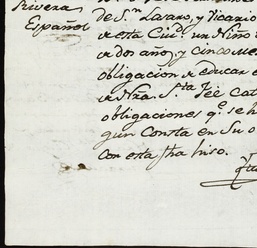 Rivera
Español
de S.n Lazaro, y Vicario
de esta Ciud.d un Niño
de dos años, y cinco me
obligacion de educar e
de Ntra. S.ta Feé Cat
obligaciones q.e se h
gun Consta en su o
con esta fha hiso.